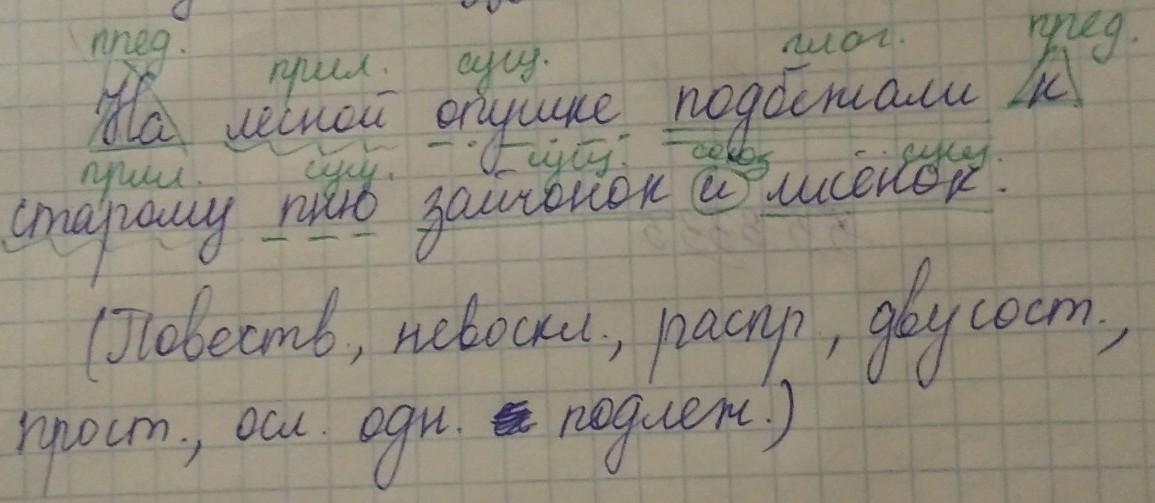 пред. прил. сущ. глаг. пред.
На лесной опушке подбежали к
прил. сущ. сущ. союз сущ.
старому пню зайчонок и лисёнок.
(Повеств., невоскл., распр., двусост.,
прост., осл. одн. подлеж.)